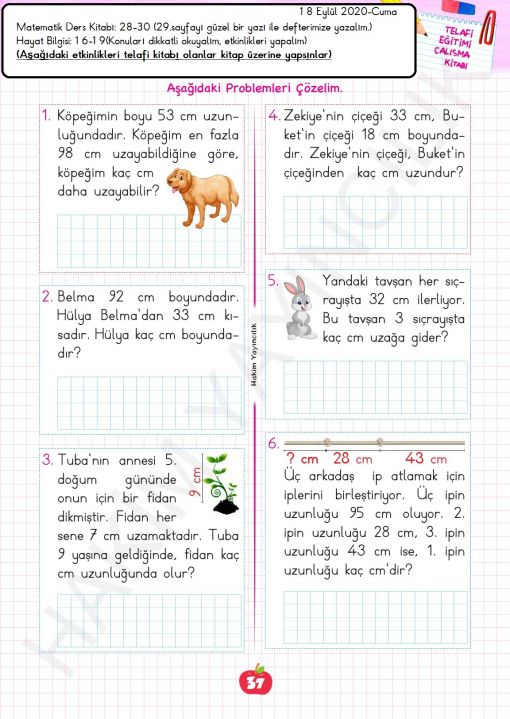 1 8 Eylül 2020-Cuma
Matematik Ders Kitabı: 28-30 (29.sayfayı güzel bir yazı ile defterimize yazalım.)
Hayat Bilgisi: 1 6-1 9(Konuları dikkatli okuyalım, etkinlikleri yapalım)
(Aşağıdaki etkinlikleri telafi kitabı olanlar kitap üzerine yapsınlar)
TELAFİ
EĞİTİMİ
ÇALIŞMA
KİTABI
Aşağıdaki Problemleri Çözelim.
1. Köpeğimin boyu 53 cm uzun-
luğundadır. Köpeğim en fazla
98 cm uzayabildiğine göre,
köpeğim kaç cm
daha uzayabilir?
2. Belma 92 cm boyundadır.
Hülya Belma'dan 33 cm kı-
sadır. Hülya kaç cm boyunda-
dır?
3. Tuba'nın annesi 5.
doğum gününde
onun için bir fidan
dikmiştir. Fidan her
sene 7 cm uzamaktadır. Tuba
9 yaşına geldiğinde, fidan kaç
cm uzunluğunda olur?
9 cm
Hakim Yayıncılık
4. Zekiye'nin çiçeği 33 cm, Bu-
ket'in çiçeği 18 cm boyunda-
dır. Zekiye'nin çiçeği, Buket'in
çiçeğinden kaç cm uzundur?
5. Yandaki tavşan her sıç-
rayışta 32 cm ilerliyor.
Bu tavşan 3 sıçrayışta
kaç cm uzağa gider?
6.
? cm 28 cm 43 cm
Üç arkadaş ip atlamak için
iplerini birleştiriyor. Üç ipin
uzunluğu 95 cm oluyor. 2.
ipin uzunluğu 28 cm, 3. ipin
uzunluğu 43 cm ise, 1. ipin
uzunluğu kaç cm'dir?
37
HAKİM YAYINCILIK